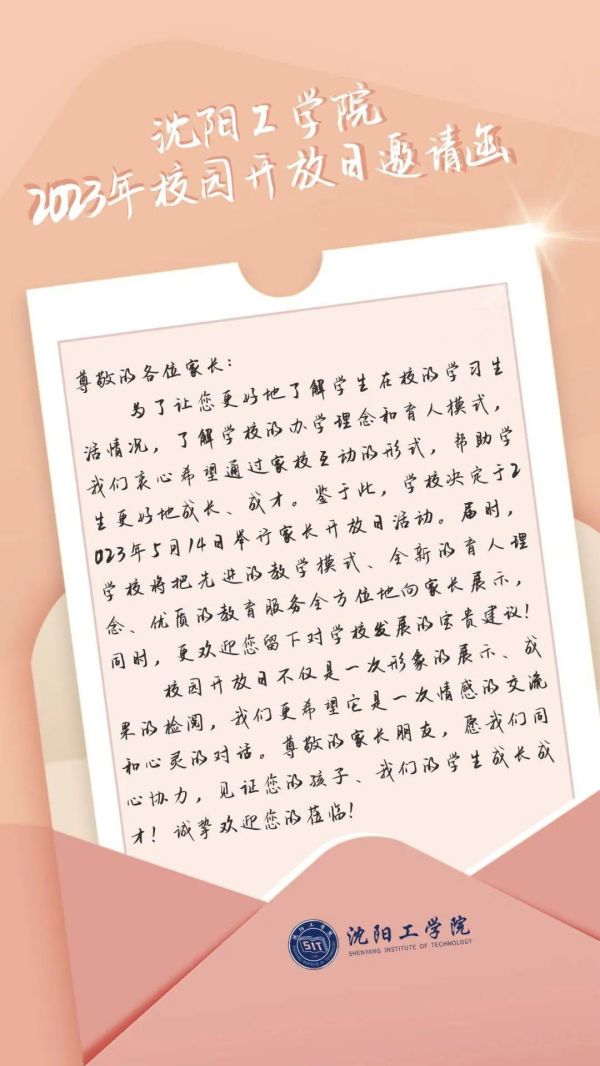 沈阳工学院
2023年校园开放日邀请函
尊敬的各位家长:
为了让您更好地了解学生在校的学习生
活情况,了解学校的办学理念和育人模式,
我们衷心希望通过家校互动的形式,帮助学
生更好地成长、成才。鉴于此,学校决定于2
023年5月14日举行家长开放日活动。届时,
学校将把先进的教学模式、全新的育人理
念、优质的教育服务全方位地向家长展示,
同时,更欢迎您留下对学校发展的宝贵建议!
校园开放日不仅是一次形象的展示、成
果的检阅,我们更希望它是一次情感的交流
和心灵的对话。尊敬的家长朋友,愿我们同
心协力,见证您的孩子、我们的学生成长成
才!诚挚欢迎您的莅临!
SIT
沈阳工学院
SHENYANG INSTITUTE OF TECHNOLOGY